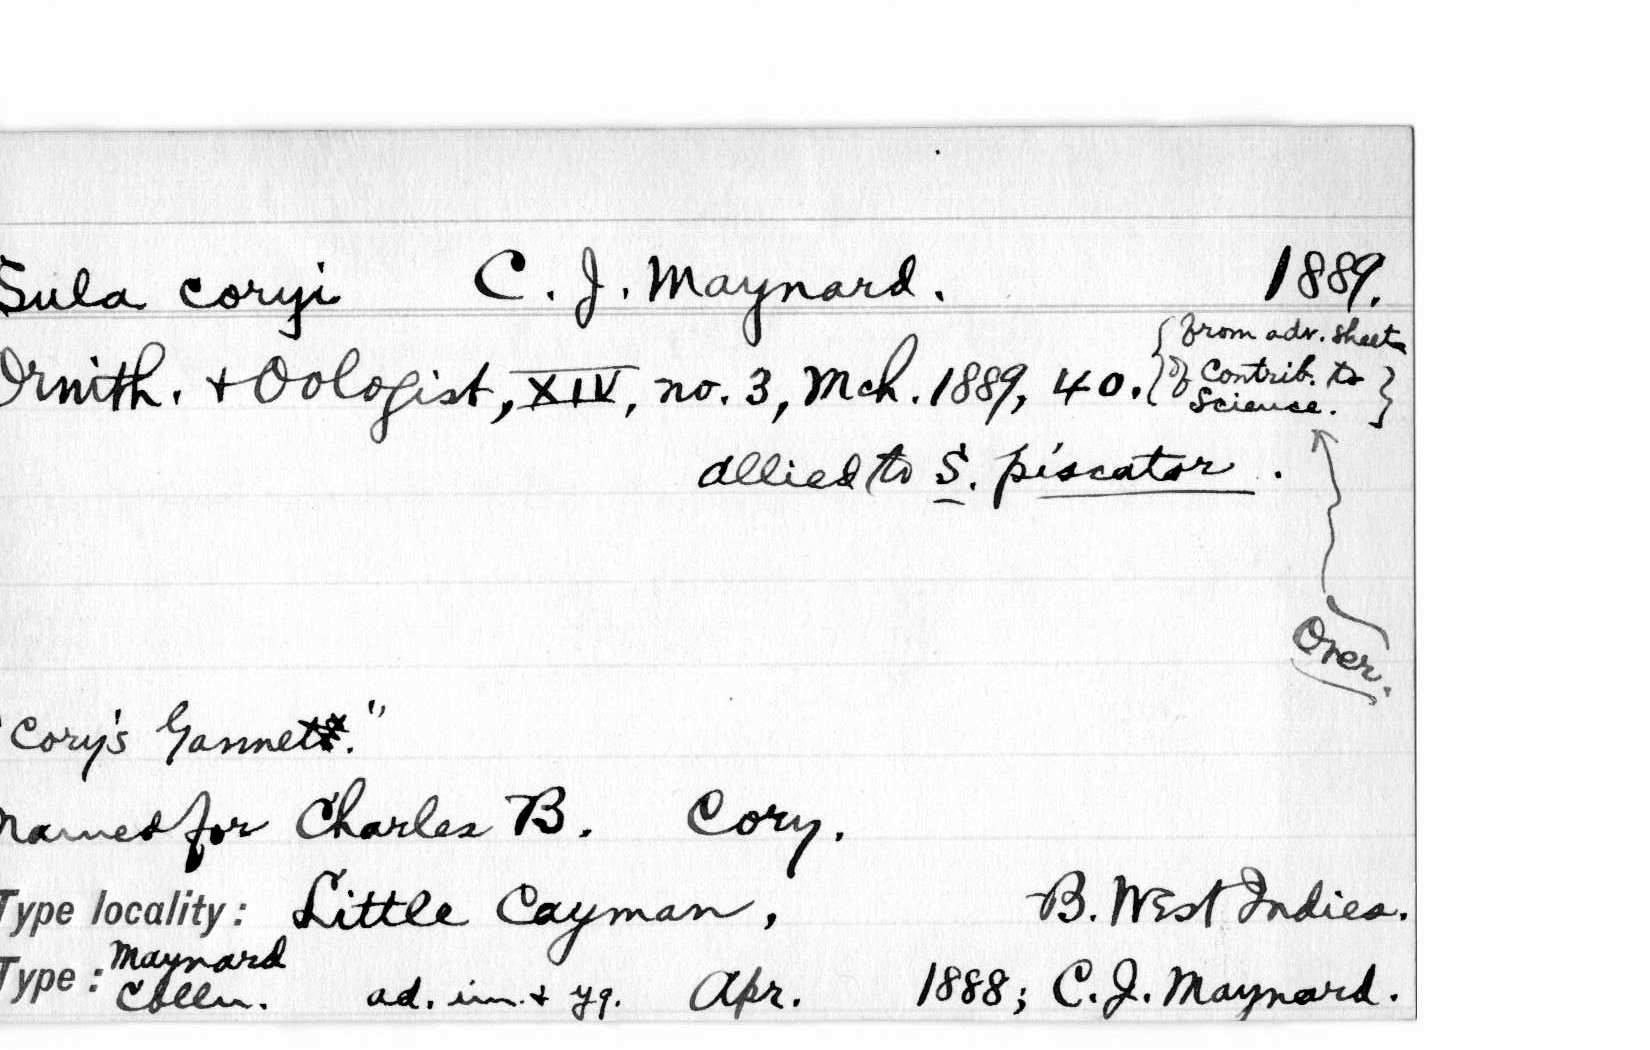 Sula coryi C. J. Maynard. 1889.
{from adv. sheets
Ornith. + Oologist, XIV, no. 3, Mch. 1889, 40. of Contrib. to
Science.}
allied to S. piscator.
Over.
"Cory's Gannet."
named for Charles B. Cory.
Type locality: Little Cayman, B. West Indies.
Type: Maynard
Colln. ad. im. + yg. Apr. 1888; C. J. Maynard.